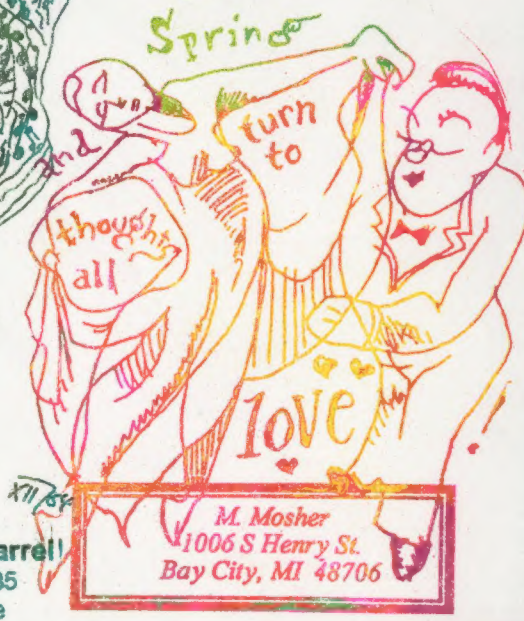 Spring
and
thoughts
all
turn
to
love
XII/
M. Mosher
1006 S Henry St.
Bay City, MI 48706
arrell
35
e